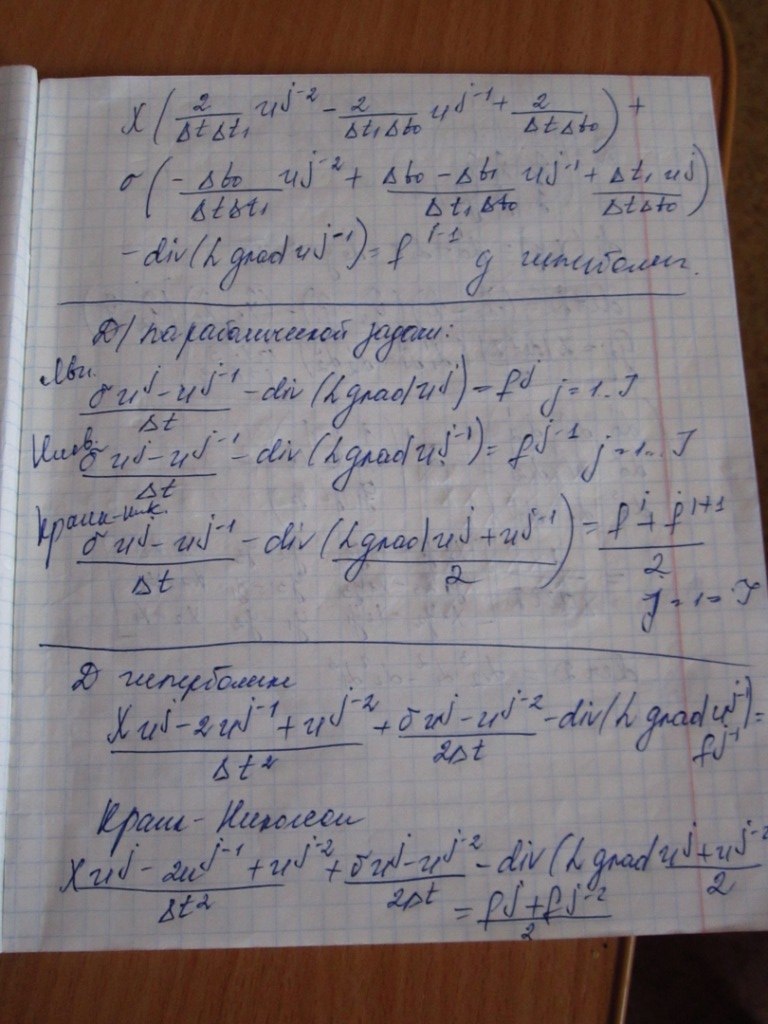 χ(2/ΔtΔt₁ u^{j-2} - 2/Δt₁Δt₀ u^{j-1} + 2/ΔtΔt₀) +
σ(-Δt₀/ΔtΔt₁ u^{j-2} + Δt₀-Δt₁/Δt₁Δt₀ u^{j-1} + Δt₁ u^j/ΔtΔt₀)
-div(λ grad u^{j-1}) = f^{j-1} д гиперболич.
Д/ параболической задачи:
Яви.
σu^j-u^{j-1}/Δt - div(λ grad u^j) = f^j j=1..J
σu^j-u^{j-1}/Δt - div(λ grad u^{j-1}) = f^{j-1} j=1..J
Кранк-Ник.
σu^j-u^{j-1}/Δt - div(λ grad u^j+u^{j-1}/2) = f^j+f^{j+1}/2
j=1-J
Д гиперболич
χu^j-2u^{j-1}+u^{j-2}/Δt² + σu^j-u^{j-2}/2Δt - div(λ grad u^{j-1}) =
f^{j-1}
Кранк-Николсон
χu^j-2u^{j-1}+u^{j-2}/Δt² + σu^j-u^{j-2}/2Δt - div(λ grad u^j+u^{j-2}/2
= f^j+f^{j-2}/2